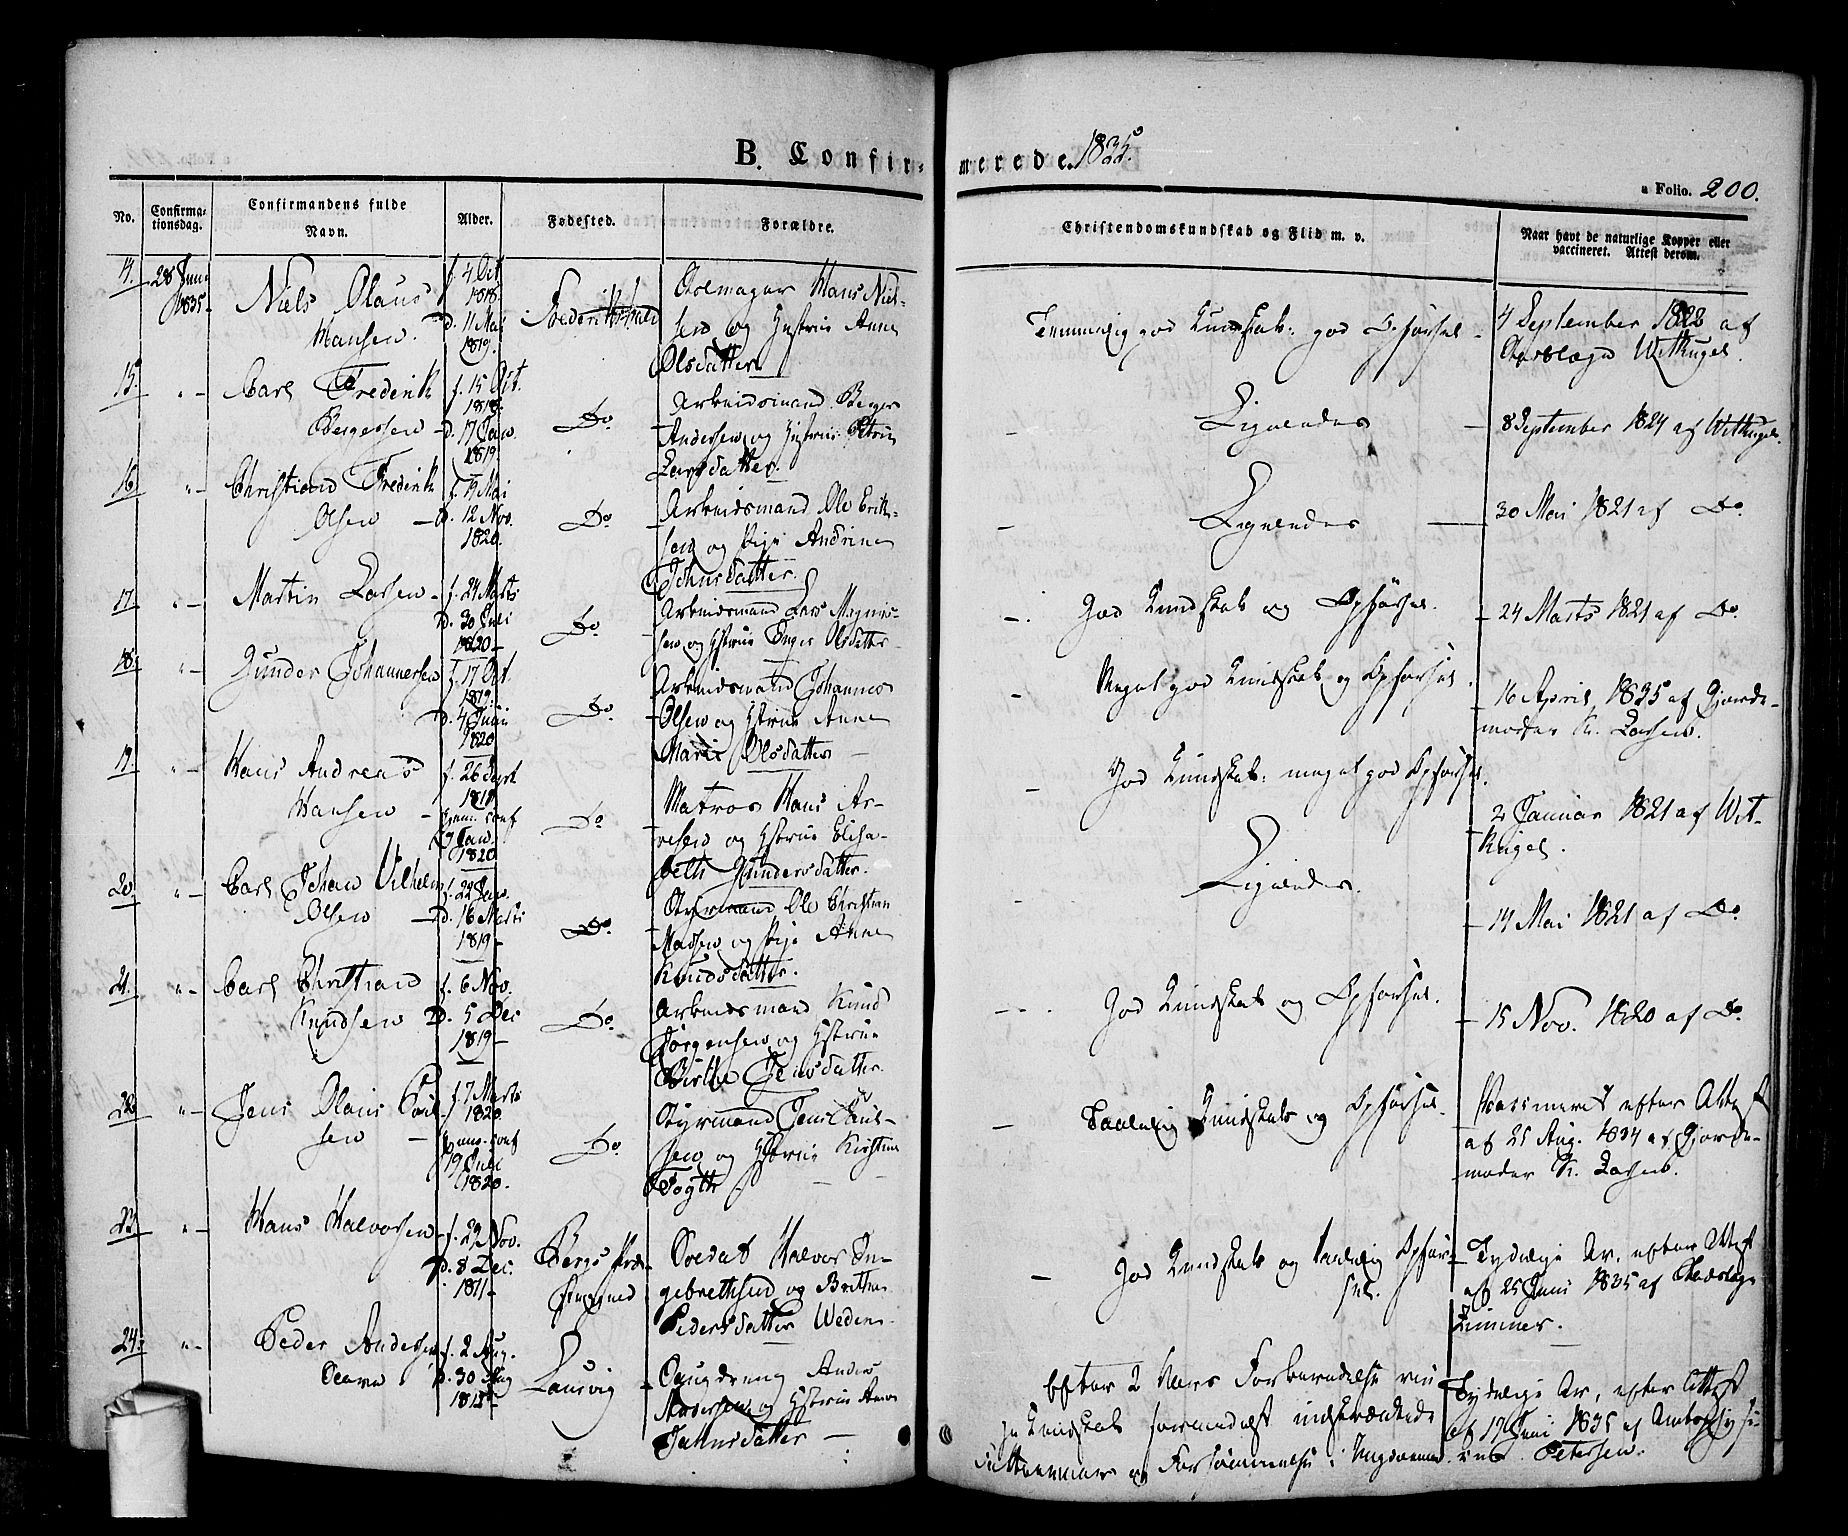 B. Confir-
merede. 1835.
a Folio. 200.
No.
Confirma-
tionsdag.
Confirmandens fulde
Navn.
Alder.
Fødested.
Forældre.
Christendomskundskab og Flid m. v.
Naar havt de naturlige Kopper eller
vaccineret. Attest derom.
14. 28 Juni
1835
Niels Olaus
Hansen.
f. 4 Oct
1818.
D. 11 Mai
1819.
Frederikshald
Hans Niel-
sen og Hustrue Anne
Olsdatter
Temmelig god Kundskab: god Opførsel.
4 September 1822 af
Withugel.
15. " Carl Frederik
Bergersen
f. 15 Oct.
1818.
D. 17 Jan.
1819.
Do
Arbeidsmand Berger
Andersen og Hustrue
Larsdatter.
Lignende
8 September 1824 af Withugel.
16. " Christian Frederik
Olsen
f. 19 Mai
D. 12 Nov.
1820.
Do
Arbeidsmand Ole Erik-
sen og Pige Andrine
Johnsdatter.
Lignende
30 Mai 1821 af Do
17. " Martin Larsen
f. 24 Marts
D. 30 Juli
1820
Do
Arbeidsmand Lars Magnus-
sen og Hstrue Inger Olsdatter
God Kundskab og Opførsel.
24 Marts 1821 af Do
18. " Gunder Johannessen
f. 17 Oct.
1819.
D. 4 Juni
1820
Do
Arbeidsmand Johannes
Olsen og Hstrue Anne
Marie Olsdatter
Meget god Kundskab og Opførsel.
16 April 1835 af Gjorde-
moder K. Larsen.
19. " Hans Andreas
Hansen
f. 26 Sept
1819
hjem. conf
9 Jan.
1820
Do
Matros Hans Ar-
vesen og Hstrue Elisa-
beth Gundersdatter.
God Kundskab: meget god Opførsel.
2 Januar 1821 af Wit-
kugel.
20. " Carl Johan Vilhelm
Olsen
f. 22 Jan.
D. 16 Marts
1819
Do
Styrmand Ole Christian
Madsen og Pige Anne
Knudsdatter.
Lignende.
14 Mai 1821 af Do
21. " Carl Christian
Knudsen
f. 6 Nov.
D. 5 Dec
1819
Do
Arbeidsmand Knud
Jørgensen og Hstrue
Birthe Jensdatter.
God Kundskab og Opførsel.
15 Nov. 1820 af Do
22. " Jens Olaus Poul-
sen
f. 7 Marts
1820
hjem. conf
19 Juli
1820.
Do
Styrmand Jens Paul-
sen og Hstrue Kirstine
Taalelig Kundskab og Opførsel.
Vaccineret efter Attest
af 25 Aug. 1834 af Gjorde-
moder K. Larsen.
23. " Hans Halvorsen
f. 29 Nov.
D. 8 Dec.
1811
Bergs Præ-
stegjeld
Soldat Halvor In-
gebrethsen og Britthe
Pedersdatter Weden
God Kundskab og taalelig Opfør-
sel.
Tydelige Ar, efter Attest
af 25 Juni 1835 af
Zimmer.
24. " Peder Andersen
f. 2 Aug.
D. 30 Aug
1818
Laurvig
Anders
Andersen og Hstrue Anne
Johnsdatter
Efter 2 Aars Forberedelse
Kundskab formedelst indskrænkede
og Forsømmelse i Ungdommen.
Tydelige Ar, efter Attest
af 17 Juni 1835 af
Petersen.